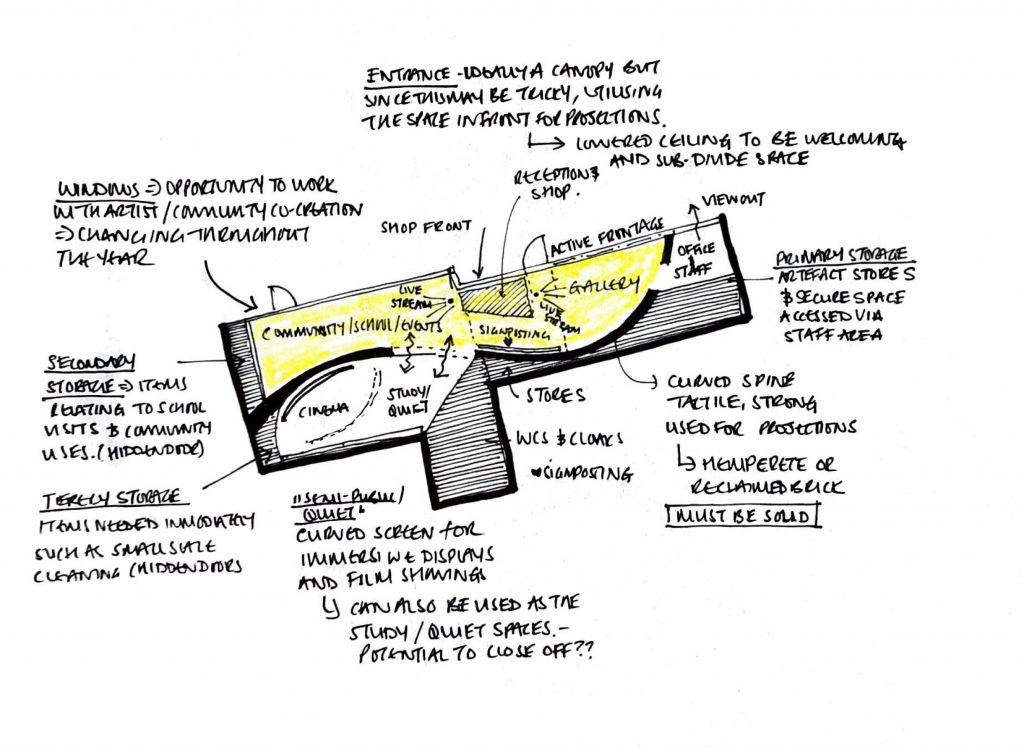 ENTRANCE - IDEALLY A CANOPY BUT
SINCE THIS MAY BE TRICKY, UTILISING
THE SPACE IN FRONT FOR PROJECTIONS.
LOWERED CEILING TO BE WELCOMING
AND SUB-DIVIDE SPACE
RECEPTION &
SHOP.
WINDOWS => OPPORTUNITY TO WORK
WITH ARTIST / COMMUNITY CO-CREATION
=> CHANGING THROUGHOUT
THE YEAR
SHOP FRONT
ACTIVE FRONTAGE
VIEW OUT
OFFICE
STAFF
PRIMARY STORAGE
ARTEFACT STORES
& SECURE SPACE
ACCESSED VIA
STAFF AREA
LIVE
STREAM
GALLERY
LIVE
STREAM
COMMUNITY/SCHOOL/EVENTS
SIGNPOSTING
SECONDARY
STORAGE => ITEMS
RELATING TO SCHOOL
VISITS & COMMUNITY
USES. (HIDDEN DOOR)
CINEMA
STUDY/
QUIET
STORES
CURVED SPINE
TACTILE, STRONG
USED FOR PROJECTIONS
HEMPCRETE OR
RECLAIMED BRICK
MUST BE SOLID
WCS & CLOAKS
SIGNPOSTING
STORAGE
ITEMS NEEDED IMMEDIATELY
SUCH AS SMALL SCALE
CLEANING (HIDDEN DOORS
"SEMI-PUBLIC/
QUIET"
CURVED SCREEN FOR
IMMERSIVE DISPLAYS
AND FILM SHOWINGS
CAN ALSO BE USED AS THE
STUDY / QUIET SPACES. -
POTENTIAL TO CLOSE OFF??